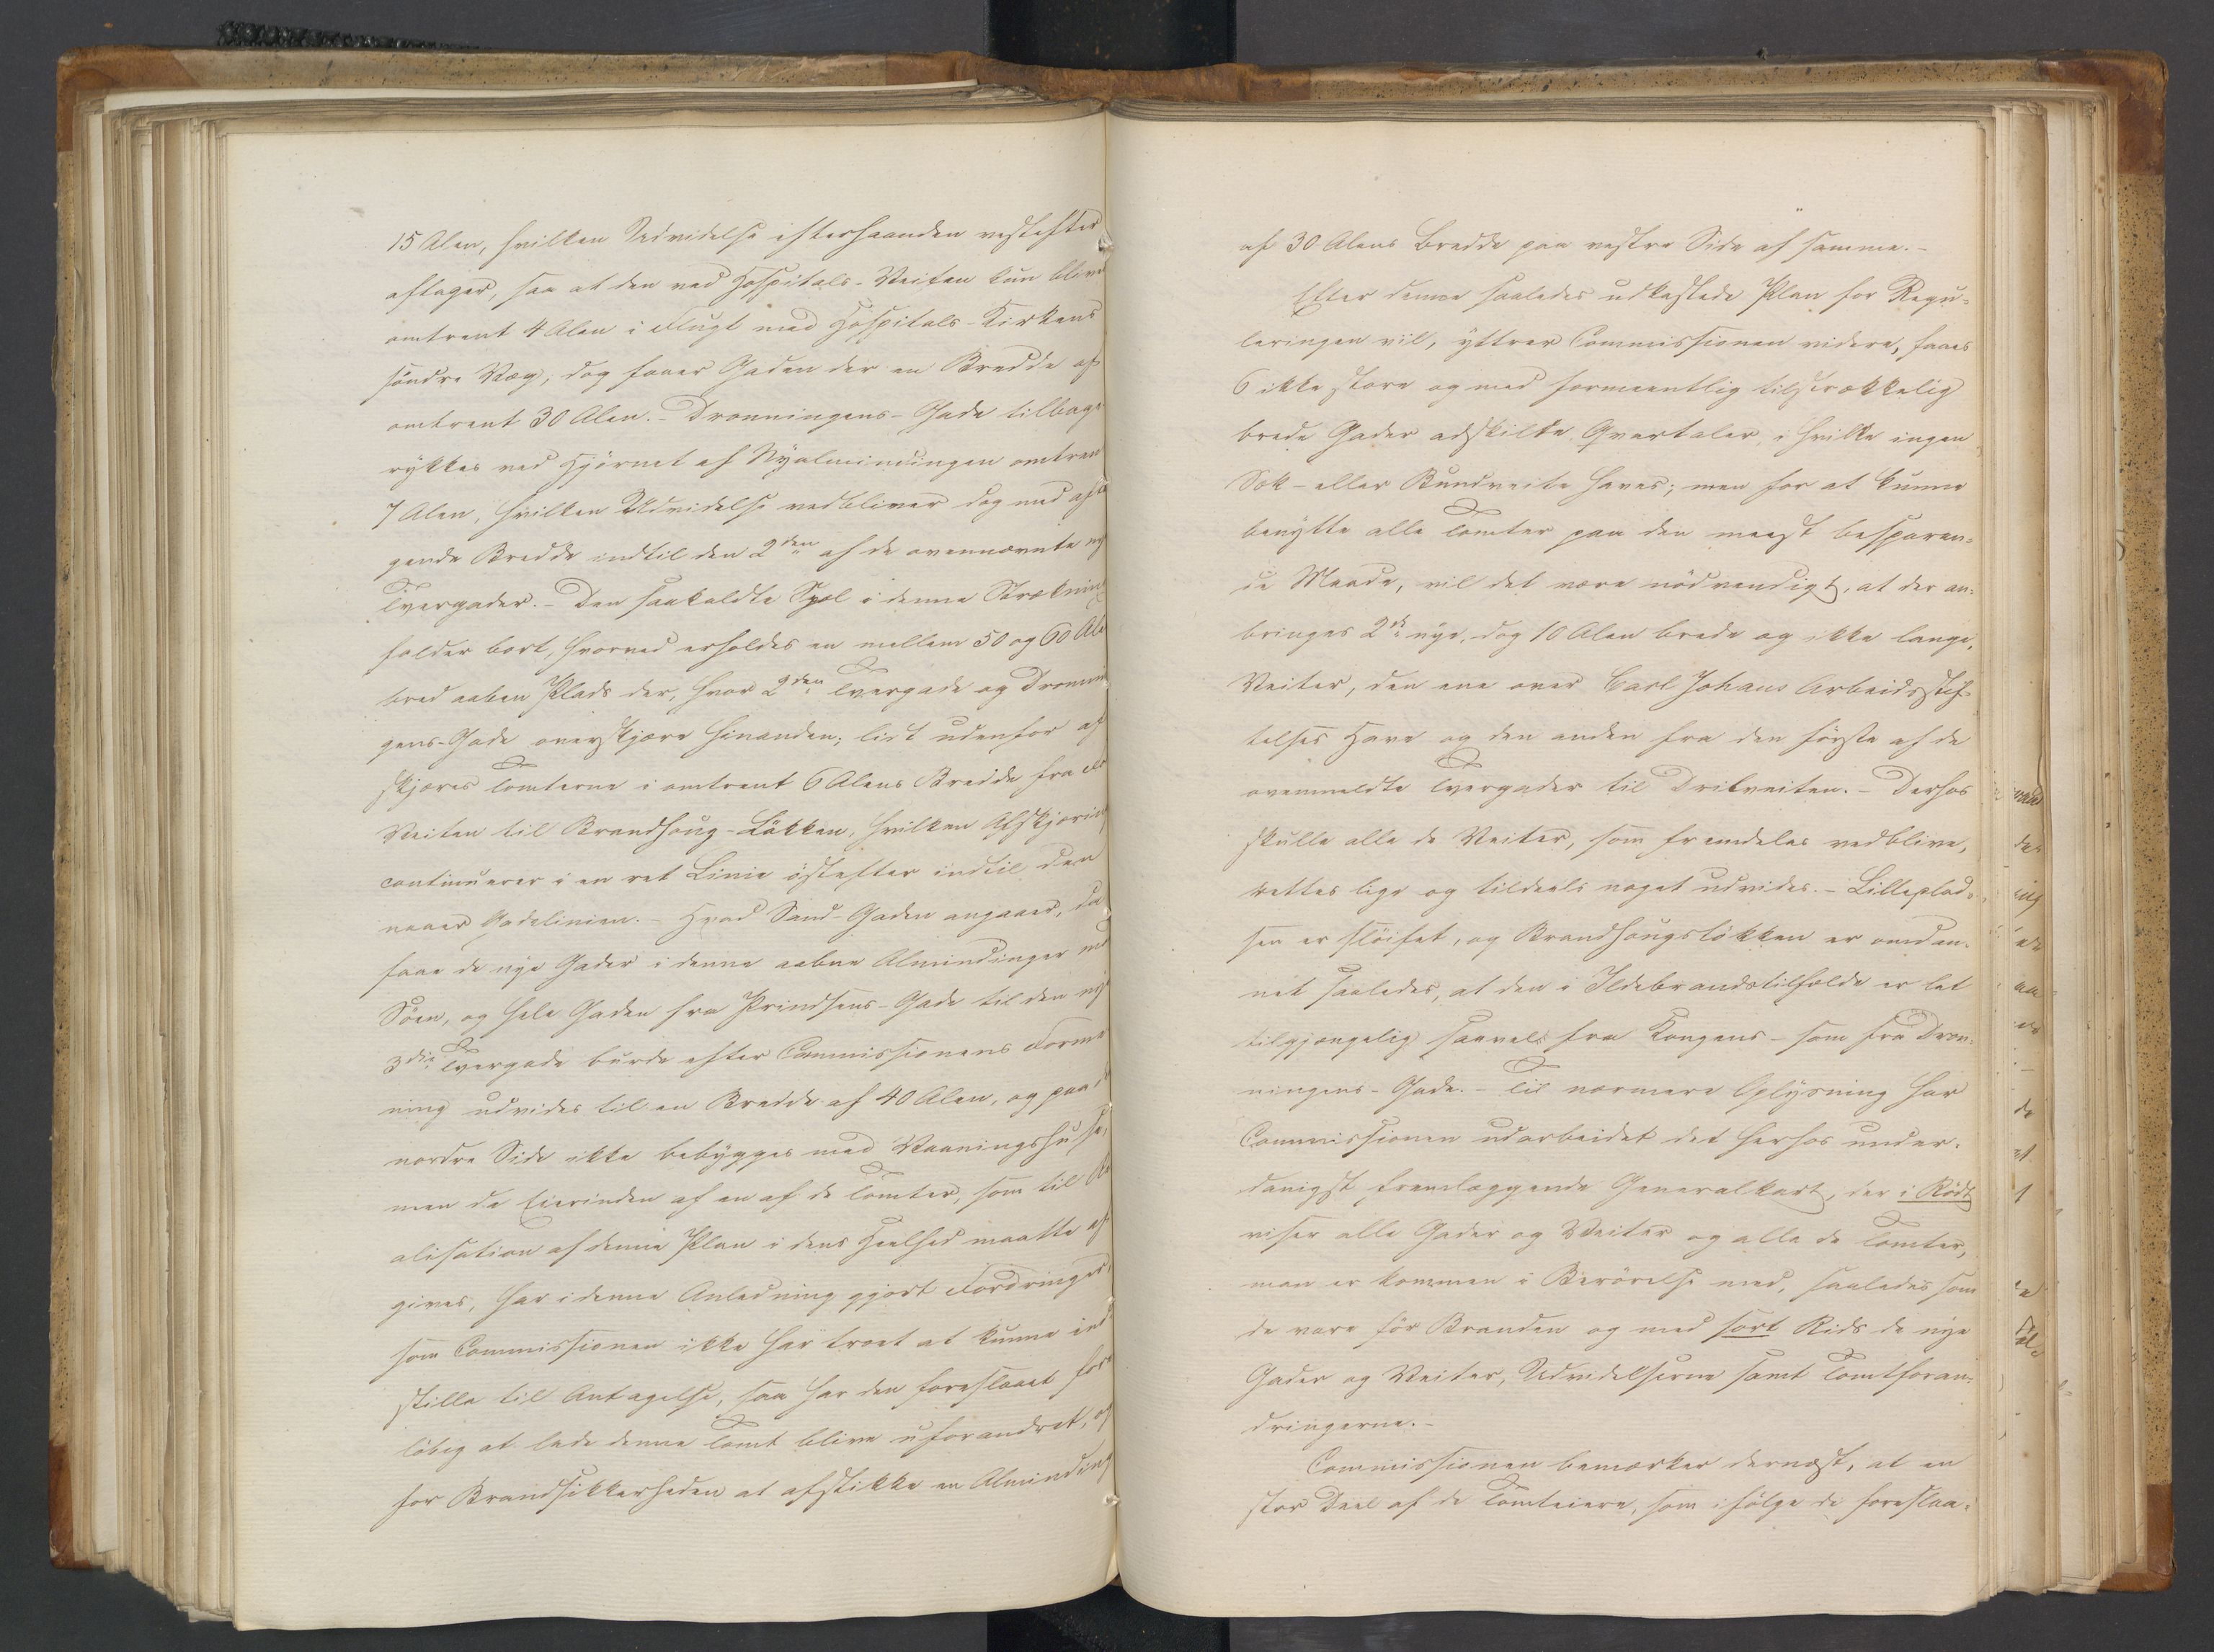 15 Alen, hvilken Udvidelse efterhaanden vestefter
aftager, saa at den ved Hospitals-Veiten kun bliver
omtrent 4 Alen i Flugt med Hospitals-Kirkens
søndre Væg; dog faaer Gaden der en Bredde af
omtrent 30 Alen. - Dronningens-Gade tilbage
rykkes ved Hjørnet af Nyalmindingen omtren
7 Alen, hvilken Udvidelse vedbliver dog med afta
gende Bredde indtil den 2den af de ovennævnte ny
Tvergader. - Den saakaldte Spæl i denne Strækning
falder bort, hvorved erholdes en mellem 50 og 60 Ale
bred aaben Plads der, hvor 2den Tvergade og Dronnin
gens-Gade overskjære hinanden; lidt udenfor af
skjæres Tomterne i omtrent 6 Alens Bredde fra
Veiten til Brandhaug-Løkken, hvilken Afskjæring
continuerer i en ret Linie østefter indtil den
naaer Gadelinien. - Hvad Sand-Gaden angaaer, da
faae de nye Gader i denne aabne Almindinger mod
Søen, og hele Gaden fra Prindsens-Gade til den nye
3die Tvergade burde efter Commissionens Forme
ning udvides til en Bredde af 40 Alen, og paa
nordre Side ikke bebygges med Vaaningshuse,
men da Eierinden af en af de Tomter, som til Re
alisation af denne Plan i dens Heelhed maatte af
gives, har i denne Anledning gjort Fordringer,
som Commissionen ikke har troet at kunne ind
stille til Antagelse, saa har den foreslaaet for
løbig at lade denne Tomt blive uforandret, og
for Brandsikkerheden at afstikke en Alminding
af 30 Alens Bredde paa vestre Side af samme. -
Efter denne saaledes udkastede Plan for Regu-
leringen vil, yttrer Commissionen videre, faaes
6 ikke store og med formeentlig tilstrækkelig
brede Gader adskilte Qvartaler, i hvilke ingen
Sæk- eller Bundveite haves; men for at kunne
benytte alle Tomter paa den meest besparen-
de Maade, vil det være nødvendigt, at der an-
bringes 2de nye, dog 10 Alen brede og ikke lange,
Veiter, den ene over Carl Johans Arbeidsstif-
telses Have og den anden fra den første af de
ovenmeldte Tvergader til Dritveiten. - Derhos
skulle alle de Veiter, som fremdeles vedblive,
rettes lige og tildeels noget udvides. - Lilleplad-
sen er sløifet, og Brandhaugsløkken er omdan-
net saaledes, at den i Ildebrandstilfælde er let
tilgjængelig saavel fra Kongens- som fra Dron-
ningens-Gade. - Til nærmere Oplysning har
Commissionen udarbeidet det herhos under-
danigst fremlæggende Generalkart, der i Rødt
viser alle Gader og Veiter og alle de Tomter,
man er kommen i Berørelse med, saaledes som
de vare før Branden og med sort Rids de nye
Gader og Veiter, Udvidelserne samt Tomtforan-
dringerne. -
Commissionen bemærker dernæst, at en
stor Deel af de Tomteiere, som ifølge de foreslaa-